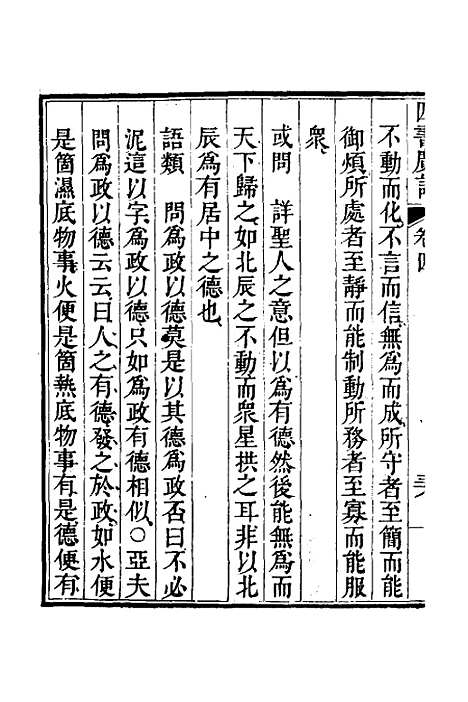 不動而化、不言而信、無為而成、所守者至簡而能
御煩、所處者至靜而能制動、所務者至寡而能服
衆、
或問　詳聖人之意但以為有德然後能無為而
天下歸之、如北辰之不動而衆星拱之耳非以北
辰為有居中之德也、
語類　問為政以德莫是以其德為政否曰不必
泥這以字、為政以德只如為政有德相似、○亞夫
問為政以德云云曰人之有德、發之於政、如水便
是箇濕底物事、火便是箇熱底物事有是德便有